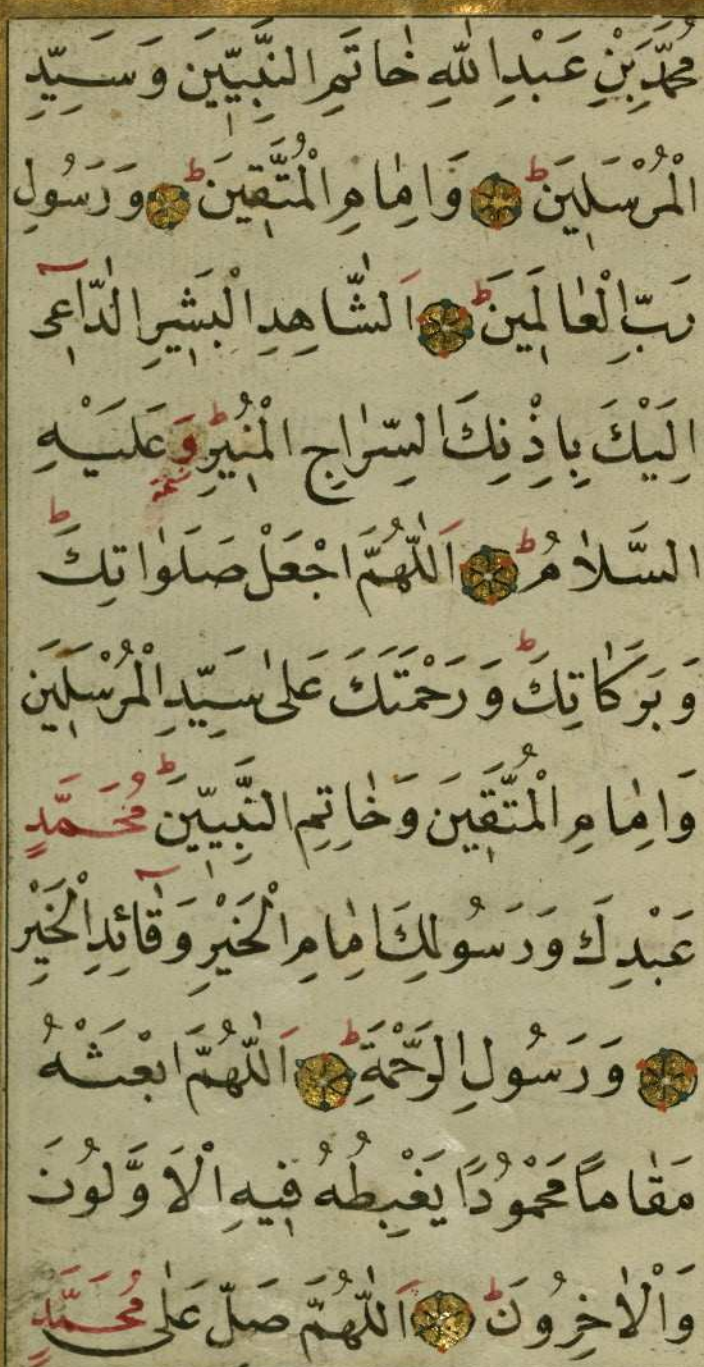 مُحَمَّدِ بْنِ عَبْدِ اللّٰهِ خَاتَمِ النَّبِيّٖينَ وَسَيِّدِ
الْمُرْسَلٖينَ ط وَاِمَامِ الْمُتَّقٖينَ ط وَرَسُولِ
رَبِّ الْعَالَمٖينَ ط اَلشَّاهِدِ الْبَشٖيرِ الدَّاعٖى
اِلَيْكَ بِاِذْنِكَ السِّرَاجِ الْمُنٖيرِ ط وَعَلَيْهِ
السَّلَامُ ط اَللّٰهُمَّ اجْعَلْ صَلَوَاتِكَ ط
وَبَرَكَاتِكَ ط وَرَحْمَتَكَ عَلٰى سَيِّدِ الْمُرْسَلٖينَ
وَاِمَامِ الْمُتَّقٖينَ وَخَاتِمِ النَّبِيّٖينَ ط مُحَمَّدٍ
عَبْدِكَ وَرَسُولِكَ اِمَامِ الْخَيْرِ وَقَآئِدِ الْخَيْرِ
وَرَسُولِ الرَّحْمَةِ ط اَللّٰهُمَّ ابْعَثْهُ
مَقَامًا مَحْمُودًا يَغْبِطُهُ فٖيهِ الْاَوَّلُونَ
وَالْاٰخِرُونَ ط اَللّٰهُمَّ صَلِّ عَلٰى مُحَمَّدٍ